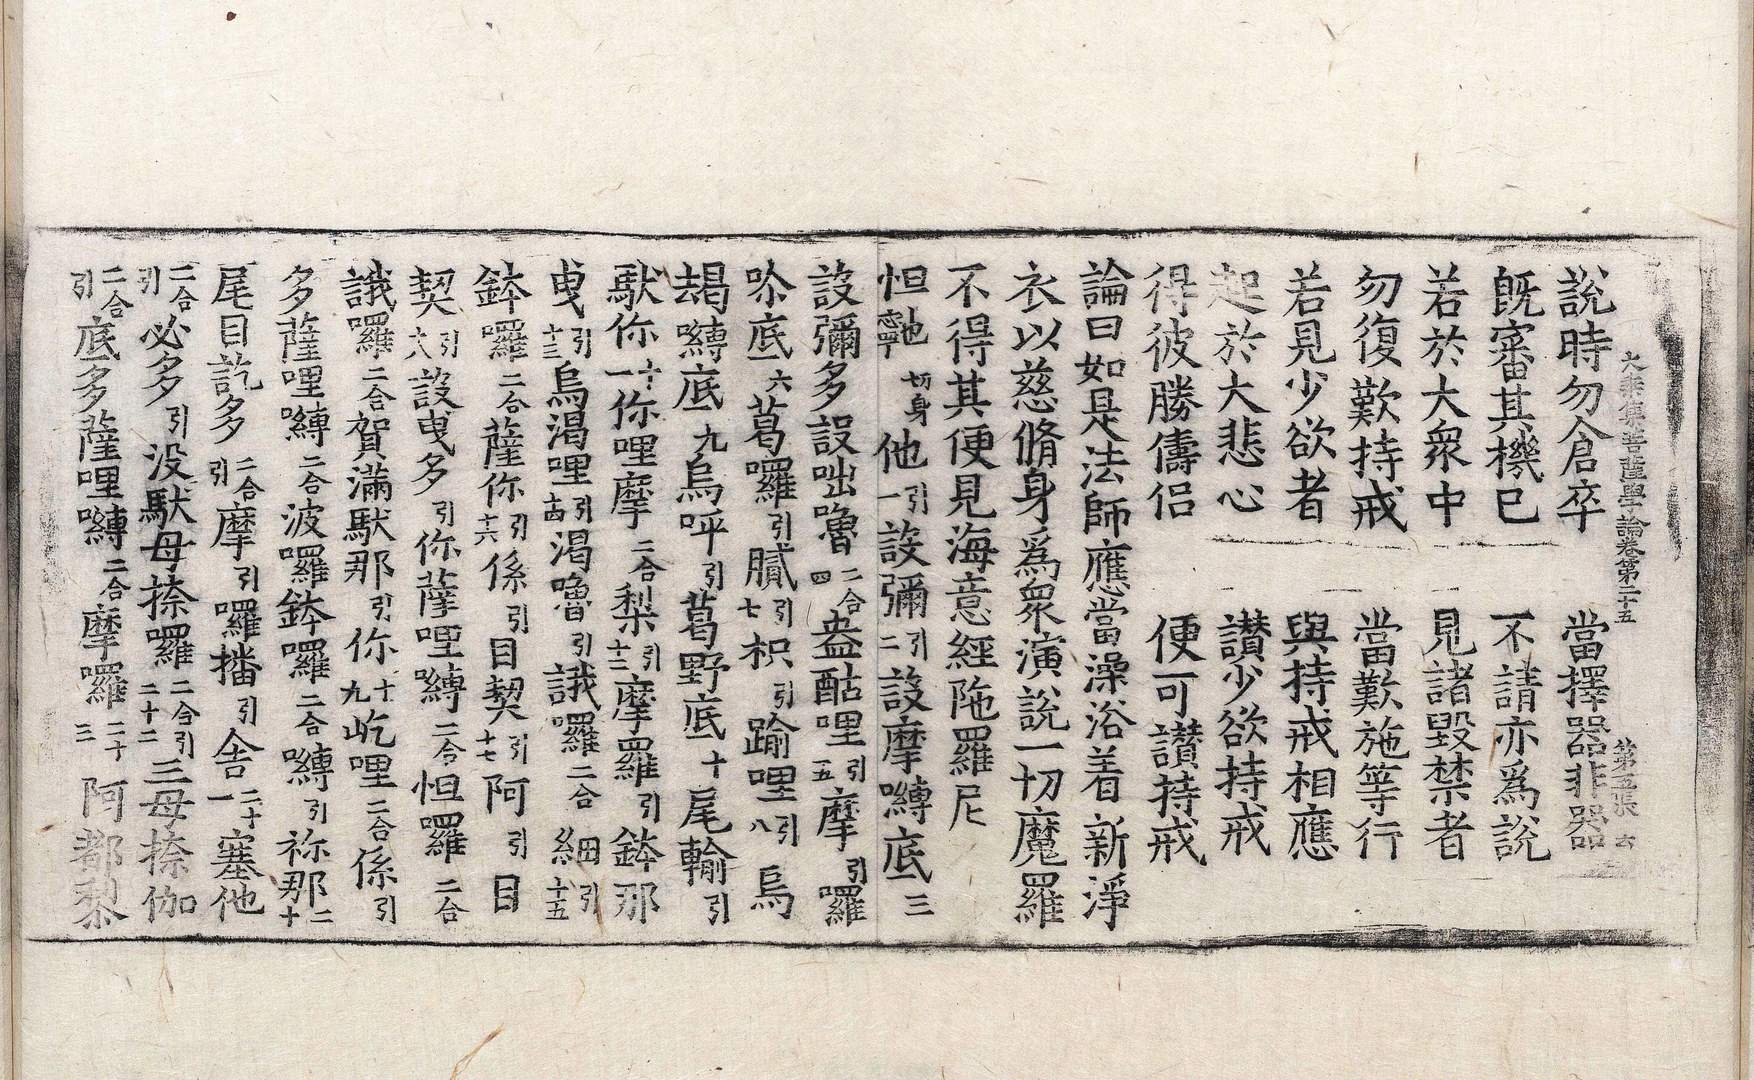 大乘集菩薩學論卷第二十五 第五張 六
說時勿倉卒 當擇器非器
旣審其機已 不請亦爲說
若於大衆中 見諸毀禁者
勿復歎持戒 當歎施等行
若見少欲者 與持戒相應
起於大悲心 讃少欲持戒
得彼勝儔侶 便可讃持戒
論曰如是法師應當澡浴着新淨
衣以慈脩身爲衆演說一切魔羅
不得其便見海意經陁羅尼
怛也他寧切身他引一設彌引二設摩嚩底三
設彌多設咄嚕二合四盎酤哩引五摩引囉
吤底六葛囉引膩引七枳引踰哩引八烏
朅嚩底九烏呼引葛野底十尾輸引
馱你十一你哩摩二合梨引十二摩羅引鉢那
曳引十三烏渴哩引十四渴嚕引誐囉二合細引十五
鉢囉二合薩你引十六係引目契引十七阿引目
契引十八設曳多引你薩哩嚩二合怛羅二合
誐囉二合賀滿馱那引你十九屹哩二合係引
多薩哩嚩二合波囉鉢囉二合嚩引祢那二十
尾目訖多二合引摩引囉播引舍二十一塞他
二合引必多引没馱母捺囉二合引二十二三母捺伽
二合引底多薩哩嚩二合摩囉二十三阿都梨